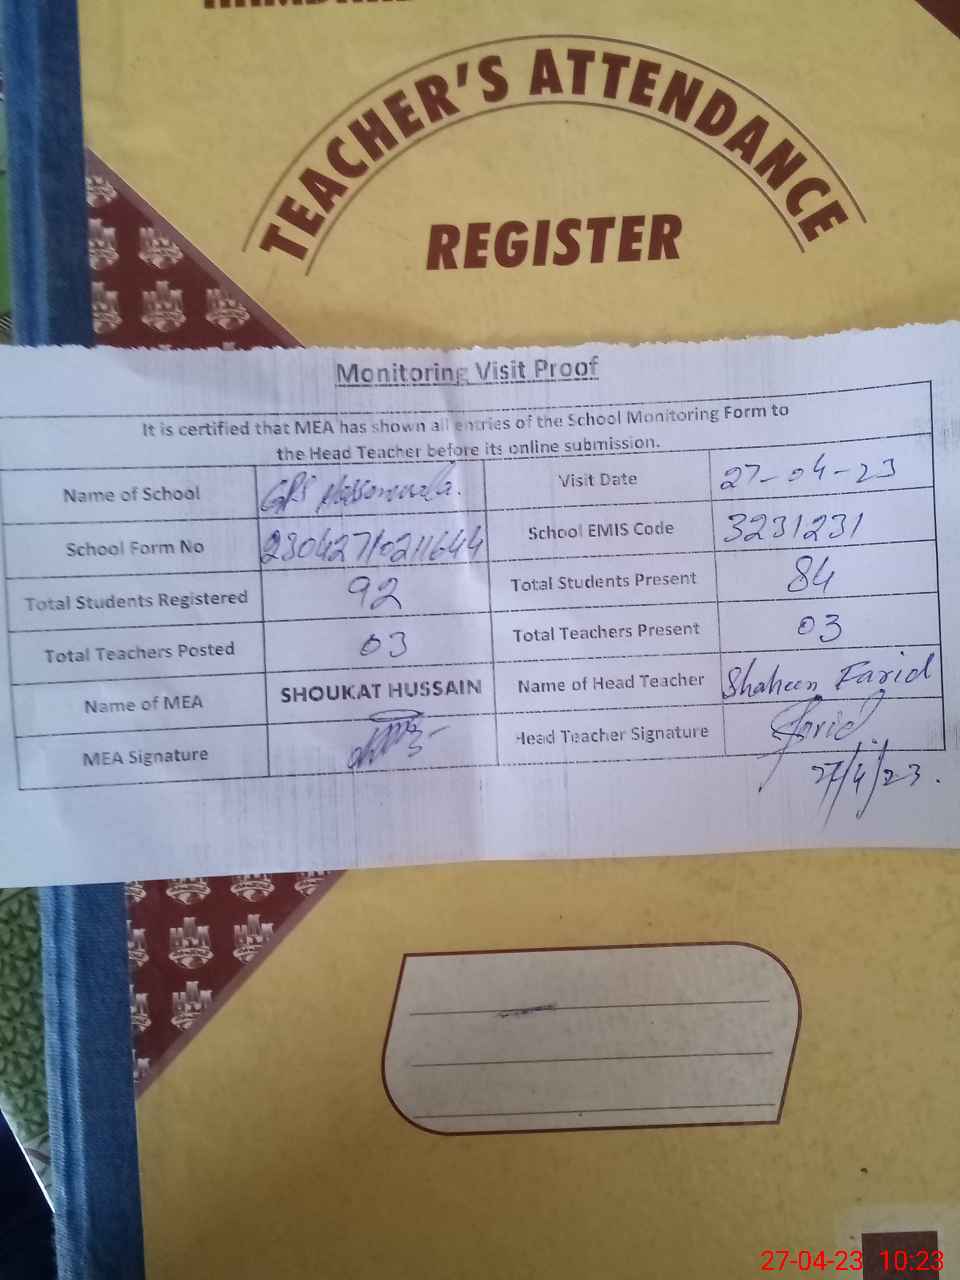 TEACHER'S ATTENDANCE
REGISTER
Monitoring Visit Proof
It is certified that MEA has shown all entries of the School Monitoring Form to
the Head Teacher before its online submission.
Name of School GPS Visit Date 27-04-23
School Form No 23042710211644 School EMIS Code 3231231
Total Students Registered 92 Total Students Present 84
Total Teachers Posted 03 Total Teachers Present 03
Name of MEA SHOUKAT HUSSAIN Name of Head Teacher Shaheen Farid
MEA Signature Head Teacher Signature Farid
27/4/23.
27-04-23 10:23